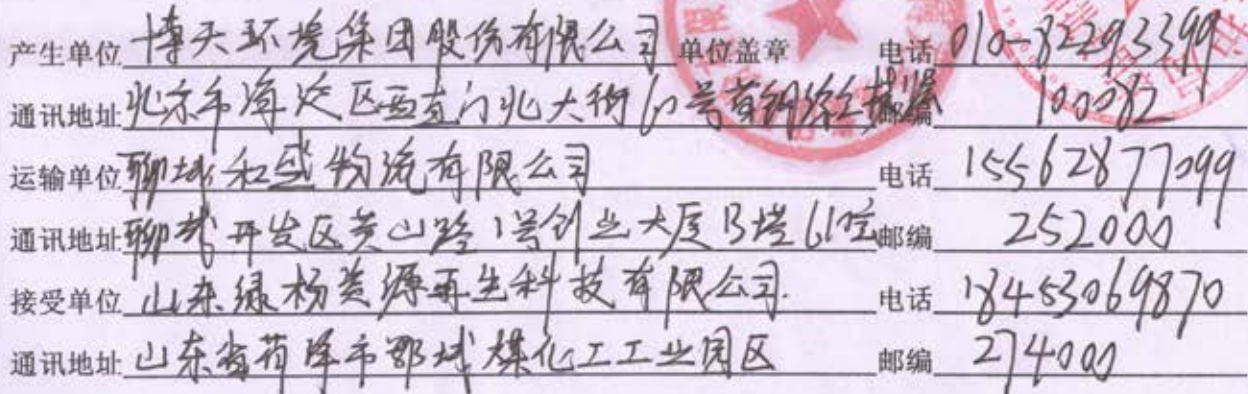 产生单位 博天环境集团股份有限公司 单位盖章 电话 010-82293399
通讯地址 北京市海淀区西直门北大街60号首钢综合楼 邮编 100082
运输单位 聊城和盛物流有限公司 电话 15562877099
通讯地址 聊城开发区黄山路1号创业大厦B塔610室 邮编 252000
接受单位 山东绿杨资源再生科技有限公司 电话 18453069870
通讯地址 山东省菏泽市鄄城煤化工工业园区 邮编 274000